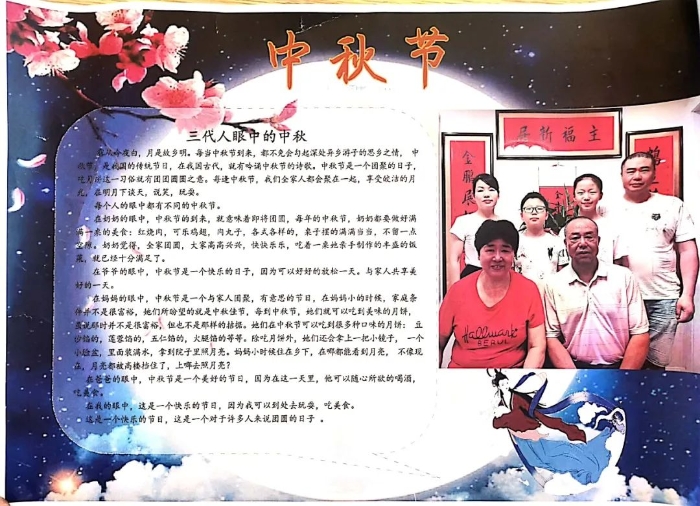 中秋节
三代人眼中的中秋
露从今夜白，月是故乡明。每当中秋节到来，都不免会勾起深处异乡游子的思乡之情，中
秋节，是我国的传统节日，在我国古代，就有吟诵中秋节的诗歌。中秋节是一个团聚的日子，
吃月饼这一习俗就有团团圆圆之意。每逢中秋节，我们全家人都会聚在一起，享受皎洁的月
光，在明月下谈天，说笑，玩耍。
每个人的眼中都有不同的中秋节。
在奶奶的眼中，中秋节的到来，就意味着即将团圆，每年的中秋节，奶奶都要做好满
满一桌的美食：红烧肉，可乐鸡翅，肉丸子，各式各样的，桌子摆的满满当当，不留一点
空隙。奶奶觉得，全家团圆，大家高高兴兴，快快乐乐，吃着一桌她亲手制作的丰盛的饭
菜，就已经十分满足了。
在爷爷的眼中，中秋节是一个快乐的日子，因为可以好好的放松一天。与家人共享美
好的一天。
在妈妈的眼中，中秋节是一个与家人团聚，有意思的节日，在妈妈小的时候，家庭条
件并不是很富裕，她们所盼望的就是中秋佳节，每到中秋节，她们就可以吃到美味的月饼，
虽说那时并不是很富裕，但也不是那样的拮据。她们在中秋节可以吃到很多种口味的月饼：豆
沙馅的，莲蓉馅的，五仁馅的，火腿馅的等等。除吃月饼外，她们还会拿上一把小镜子，一个
小脸盆，里面装满水，拿到院子里照月亮。妈妈小时候住在乡下，在哪都能看到月亮，不像现
在，月亮都被高楼挡住了，上哪去照月亮？
在爸爸的眼中，中秋节是一个美好的节日，因为在这一天里，他可以随心所欲的喝酒，
吃美食。
在我的眼中，这是一个快乐的节日，因为我可以到处去玩耍，吃美食。
这是一个快乐的节日，这是一个对于许多人来说团圆的日子。
居祈福主
金
展
Hallmark
SEOUL